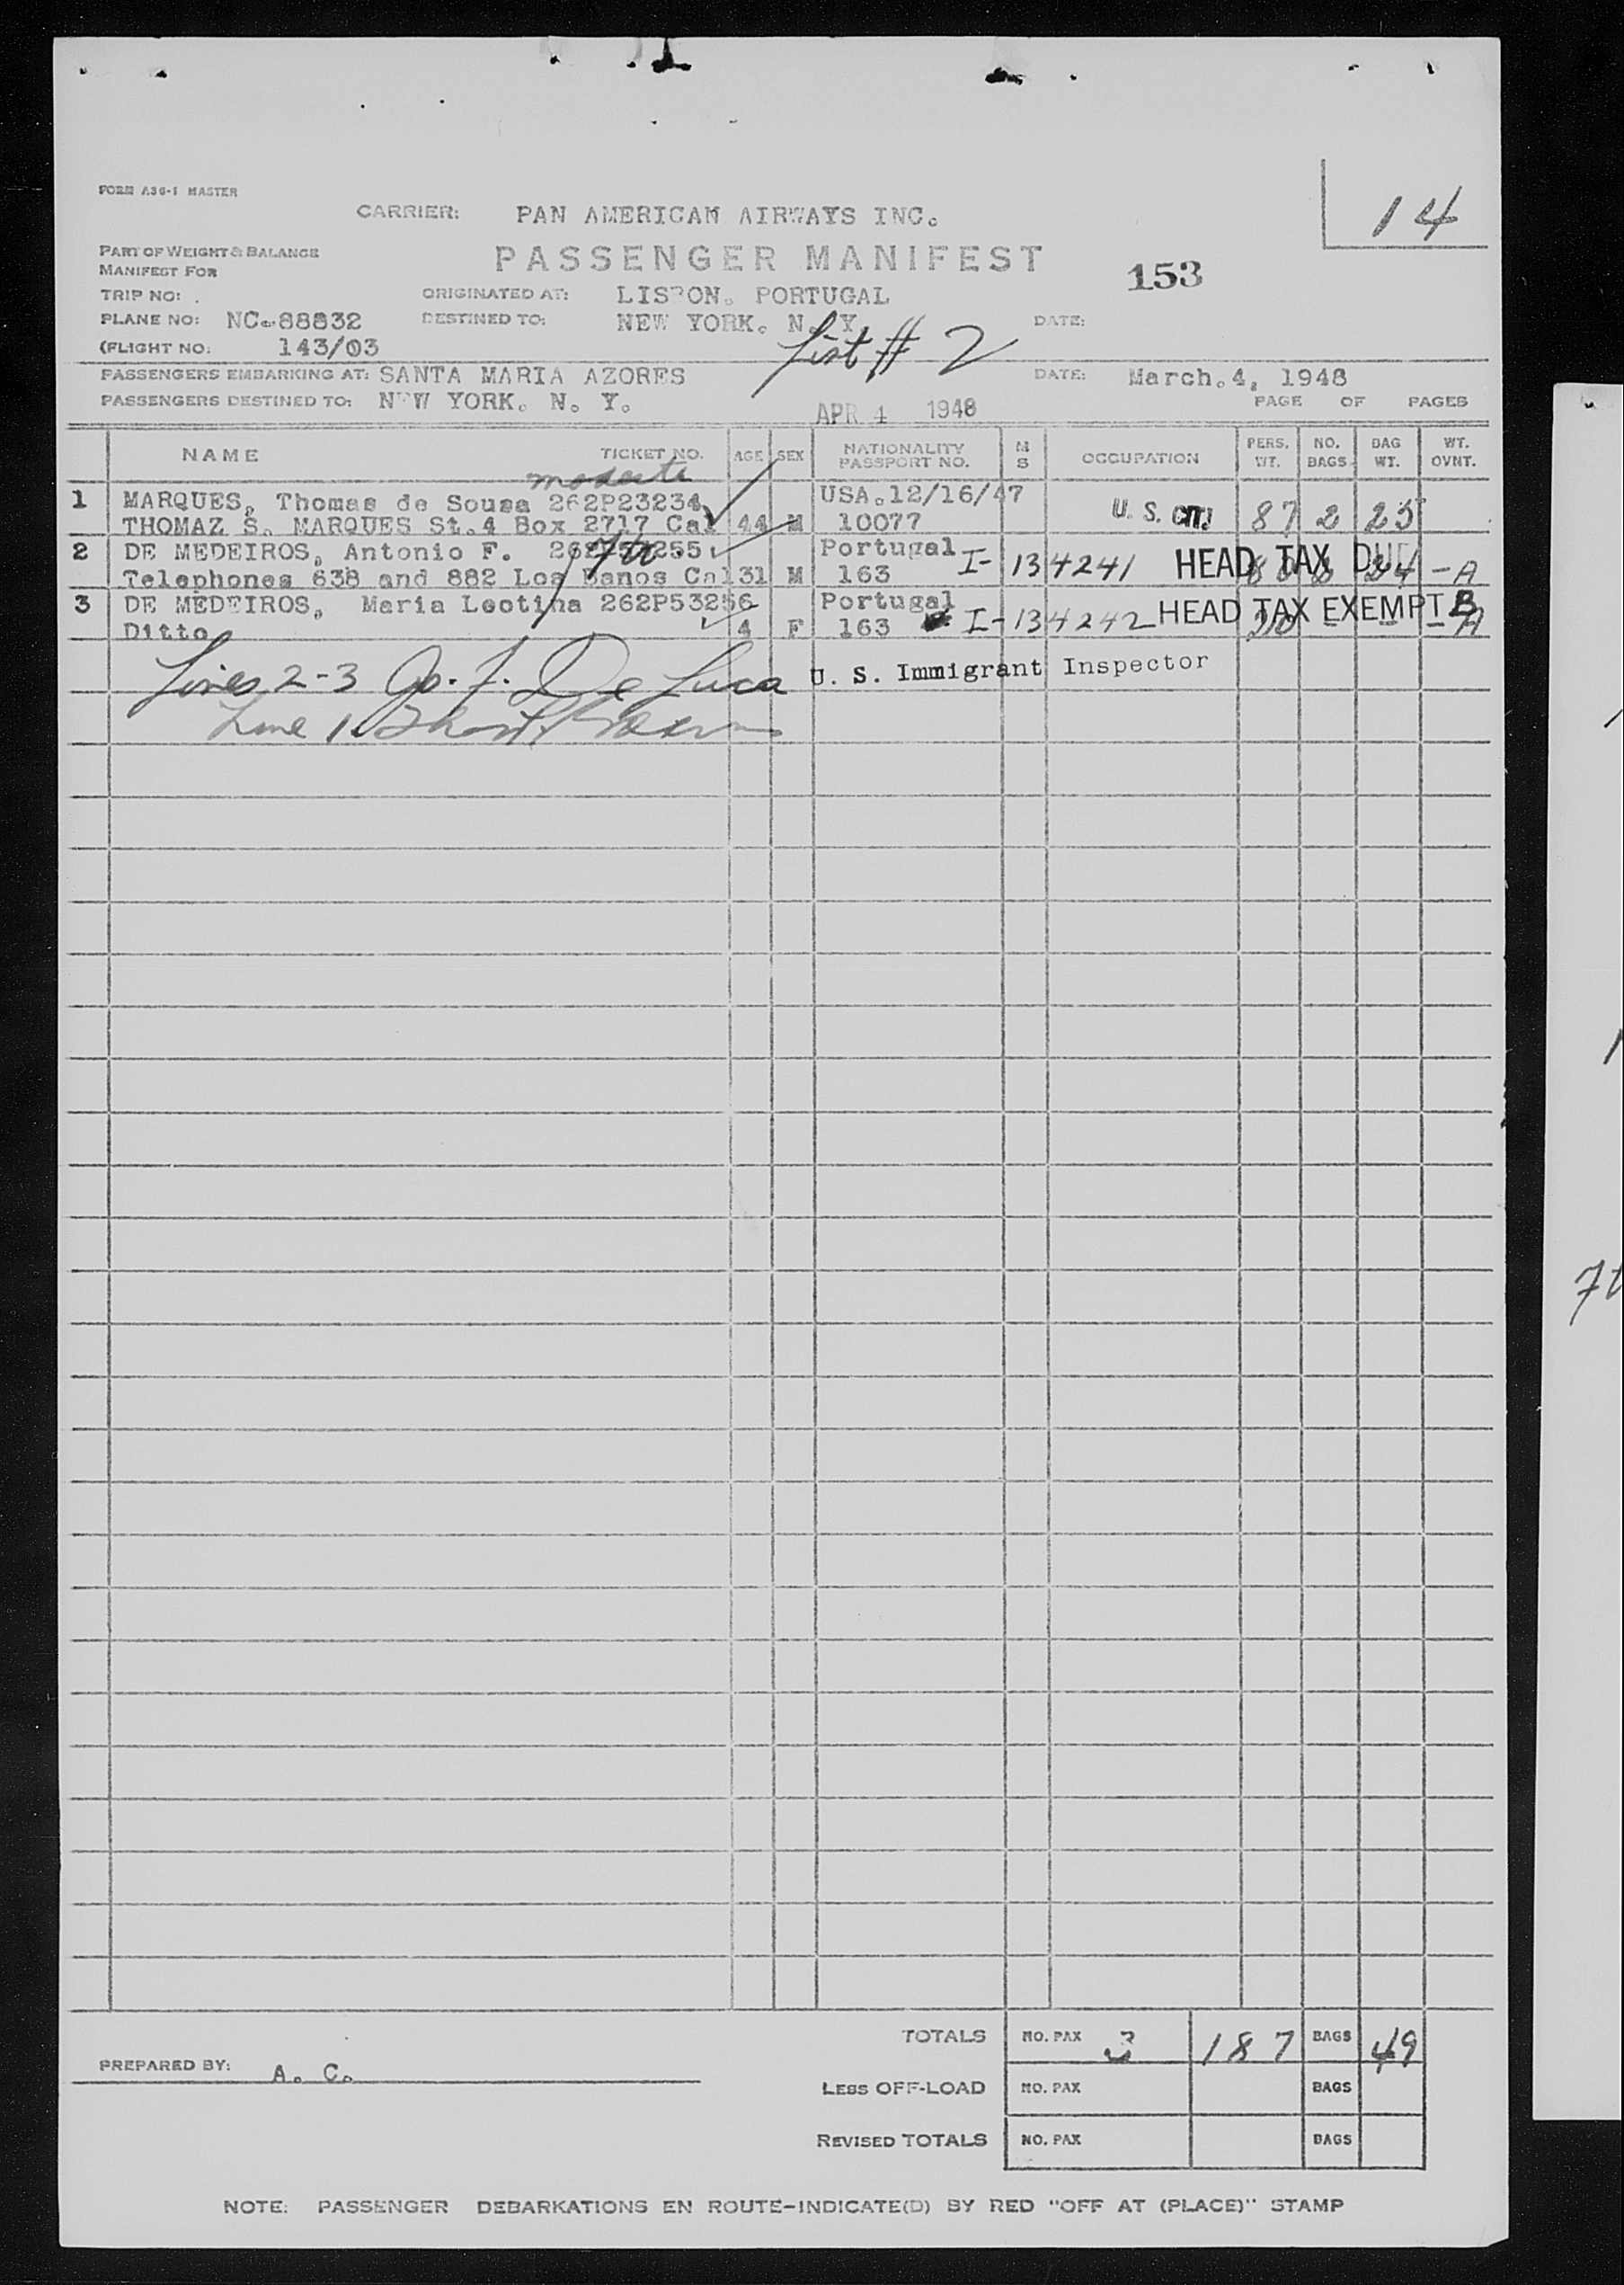 FORM A36-1 MASTER
14
CARRIER: PAN AMERICAN AIRWAYS INC.
PART OF WEIGHT & BALANCE
MANIFEST FOR
PASSENGER MANIFEST
153
TRIP NO: .
ORIGINATED AT: LISBON. PORTUGAL
PLANE NO: NC.88832
DESTINED TO: NEW YORK. N. Y.
DATE:
(FLIGHT NO: 143/03
List # 2
PASSENGERS EMBARKING AT: SANTA MARIA AZORES
DATE: March.4, 1948
PASSENGERS DESTINED TO: NEW YORK. N. Y.
APR 4 1948
PAGE OF PAGES
NAME TICKET NO. AGE SEX NATIONALITY PASSPORT NO. M S OCCUPATION PERS. WT. NO. BAGS BAG WT. WT. OVNT.
modesto
1 MARQUES, Thomas de Sousa 262P23234 USA.12/16/47
THOMAZ S. MARQUES St.4 Box 2717 Cal 44 M 10077 U. S. CIT. 87 2 25
2 DE MEDEIROS, Antonio F. Portugal I-134241 HEAD TAX DUE
Telephones 638 and 882 Los Banos Cal 31 M 163 24 - A
3 DE MEDEIROS, Maria Leotina 262P53256 Portugal I-134242 HEAD TAX EXEMPT B
Ditto 4 F 163 - - - A
Lines 2-3 De Luca U. S. Immigrant Inspector
Line 1
TOTALS NO. PAX 3 187 BAGS 49
PREPARED BY: A. C.
LESS OFF-LOAD NO. PAX BAGS
REVISED TOTALS NO. PAX BAGS
NOTE: PASSENGER DEBARKATIONS EN ROUTE-INDICATE(D) BY RED "OFF AT (PLACE)" STAMP